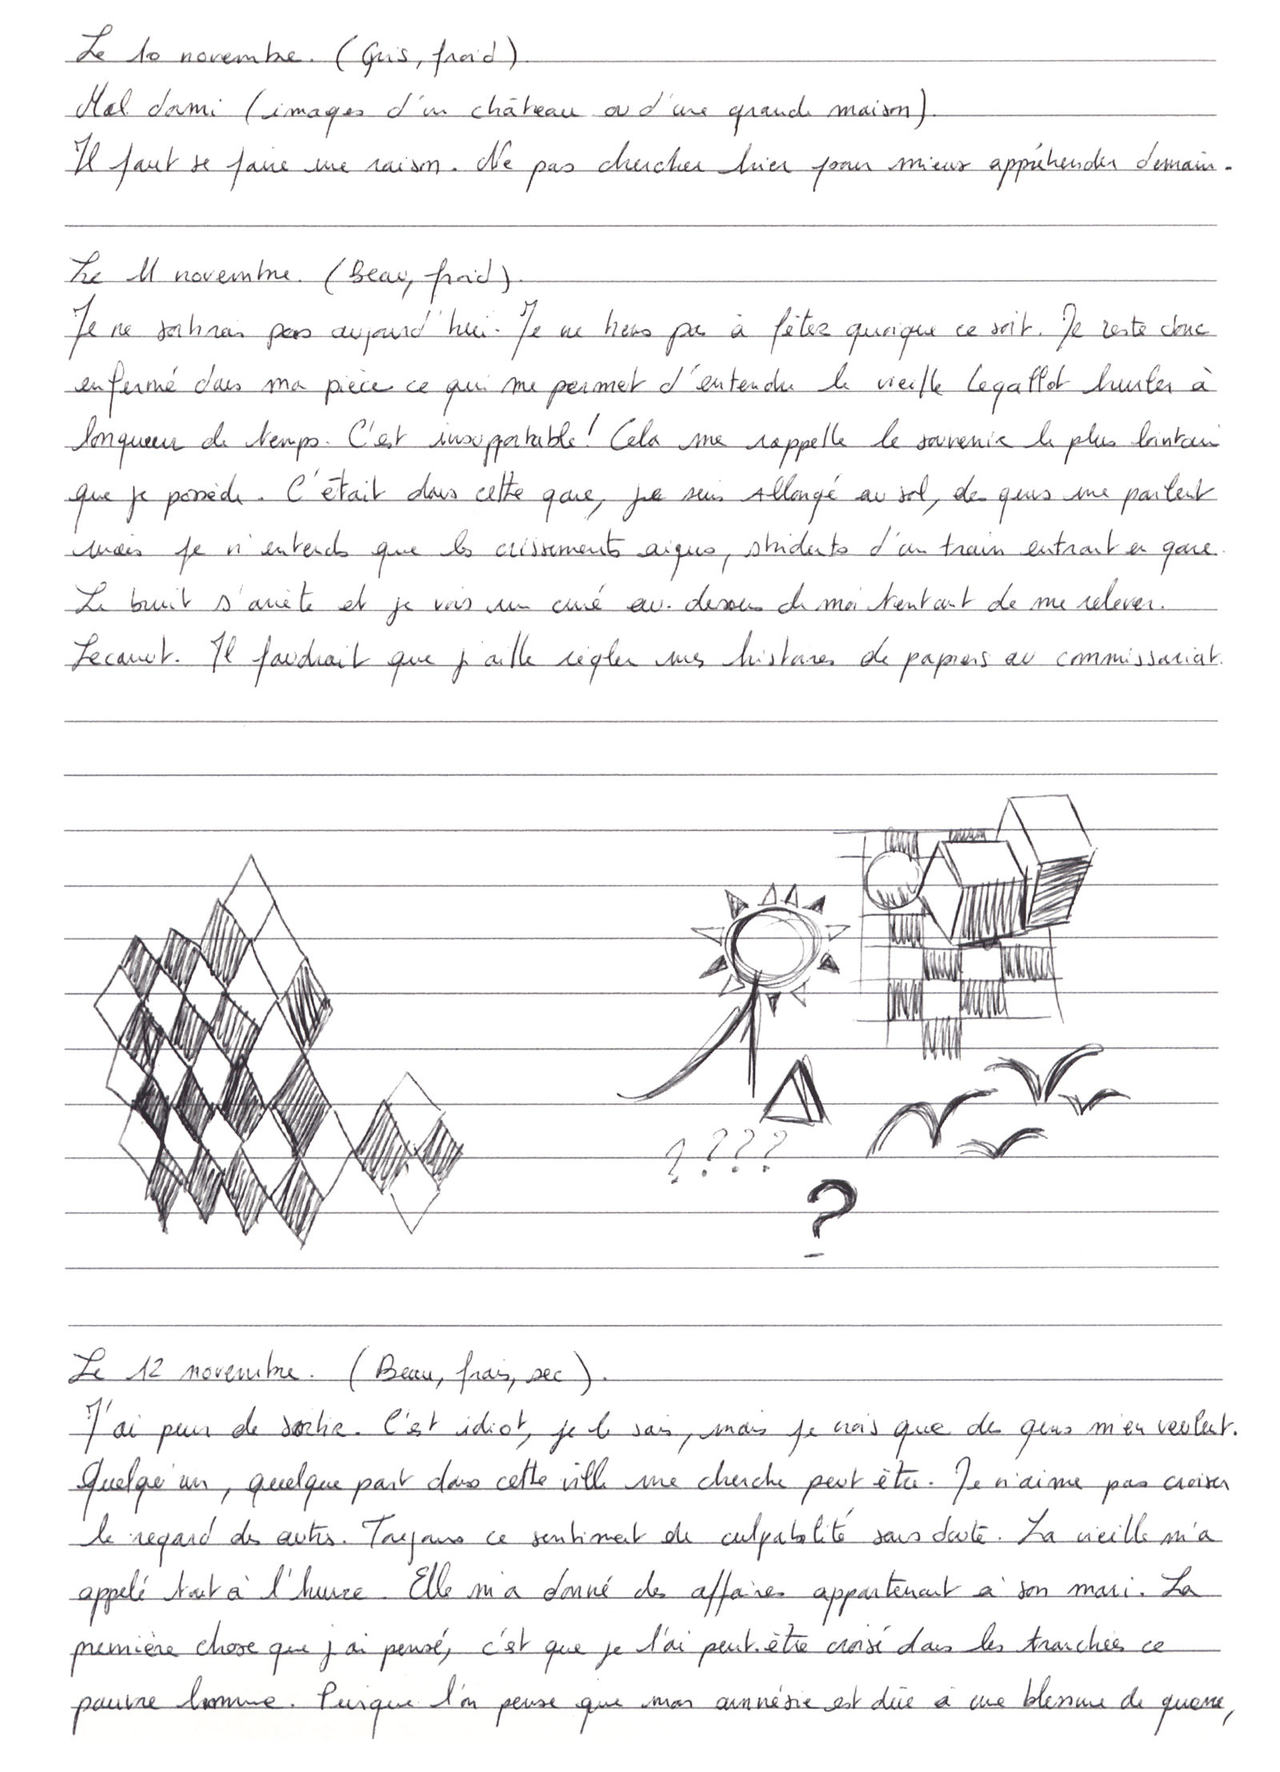 Le 10 novembre. (Gris, froid).
Mal dormi (images d'un château ou d'une grande maison).
Il faut se faire une raison. Ne pas chercher hier pour mieux appréhender demain.
Le 11 novembre. (Beau, froid).
Je ne sortirais pas aujourd'hui. Je ne tiens pas à fêter quoique ce soit. Je reste donc
enfermé dans ma pièce ce qui me permet d'entendre la vieille Legallot hurler à
longueur de temps. C'est insupportable! Cela me rappelle le souvenir le plus lointain
que je possède. C'était dans cette gare, je suis allongé au sol, des gens me parlent
mais je n'entends que les crissements aigus, stridents d'un train entrant en gare.
Le bruit s'arrête et je vois un curé au-dessus de moi tentant de me relever.
Lecanut. Il faudrait que j'aille régler mes histoires de papiers au commissariat.
? ? ? ?
?
Le 12 novembre. (Beau, frais, sec).
J'ai peur de sortir. C'est idiot, je le sais, mais je crois que des gens m'en veulent.
Quelqu'un, quelque part dans cette ville me cherche peut être. Je n'aime pas croiser
le regard des autres. Toujours ce sentiment de culpabilité sans doute. La vieille m'a
appelé tout à l'heure. Elle m'a donné des affaires appartenant à son mari. La
première chose que j'ai pensé, c'est que je l'ai peut-être croisé dans les tranchées ce
pauvre homme. Puisque l'on pense que mon amnésie est dûe à une blessure de guerre,